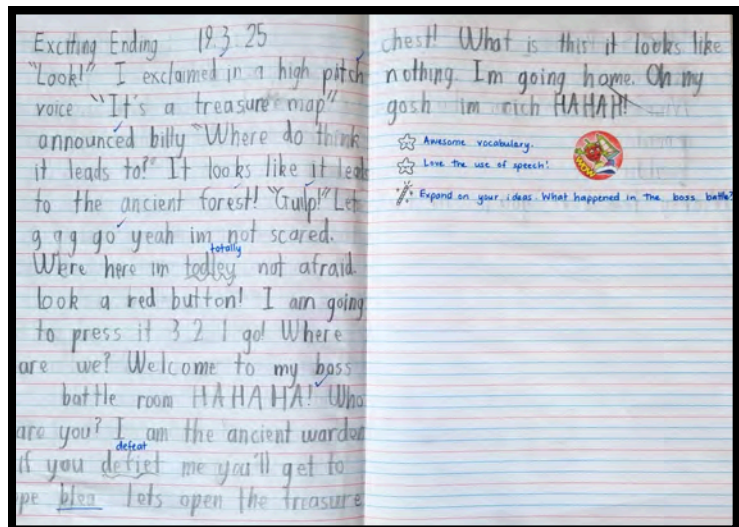 Exciting Ending 19.3.25
"Look!" I exclaimed in a high pitch
voice "It's a treasure map"
announced billy "Where do think
it leads to?" It looks like it leads
to the ancient forest! "Guilp!" Lets
g g g go yeah im not scared.
totally
We're here im todley not afraid.
look a red button! I am going
to press it 3 2 1 go! Where
are we? Welcome to my boss
battle room HAHAHA! Who
are you? I am the ancient warden
defeat
if you defiet me you'll get to
ope blea lets open the treasure
chest! What is this it looks like
nothing. Im going home. Oh my
gosh im rich HAHAH!
Awesome vocabulary.
WOW
Love the use of speech!
Expand on your ideas. What happened in the boss battle?